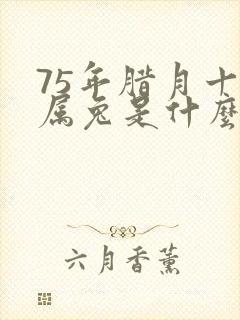 75年腊月十
属兔是什麽
六月香薰